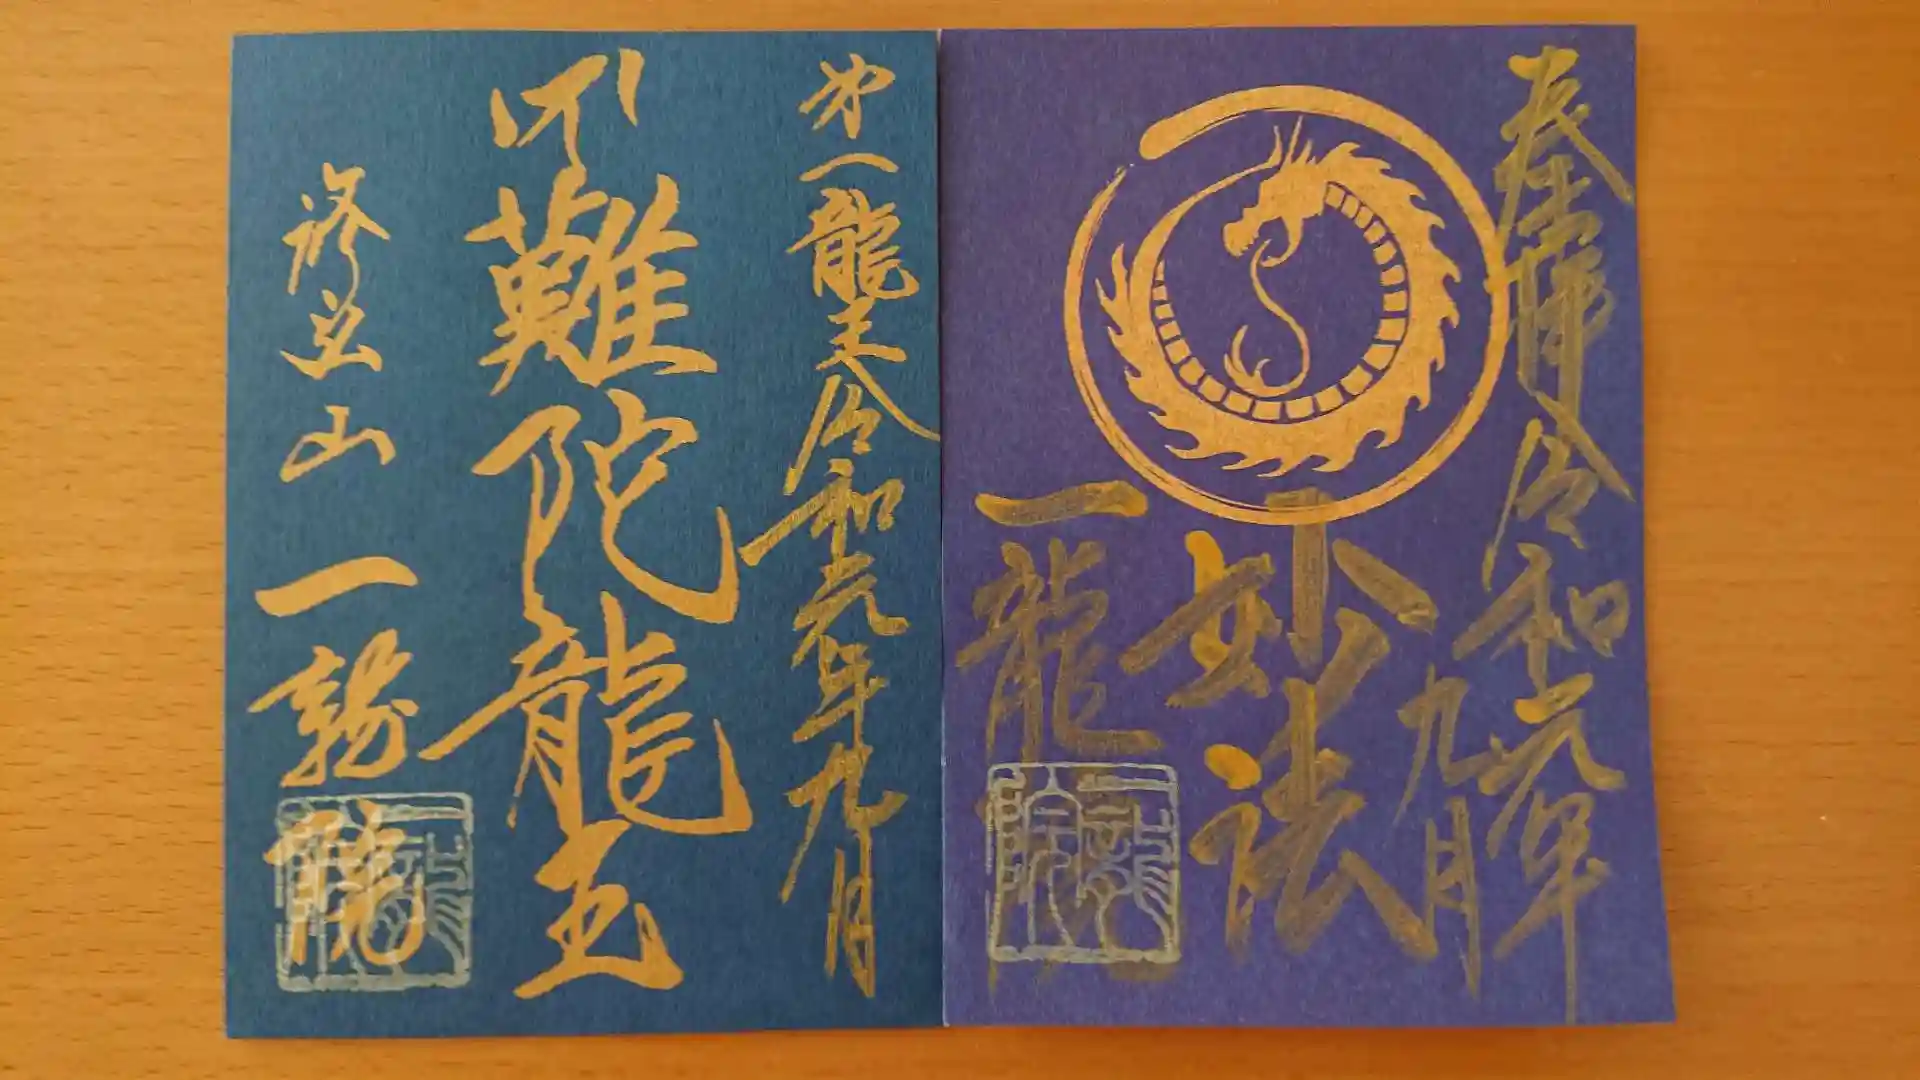 奉拝令和元年
九月
妙法
一龍院
一龍院
第一龍王令和元年九月
難陀龍王
山一龍院
一龍院